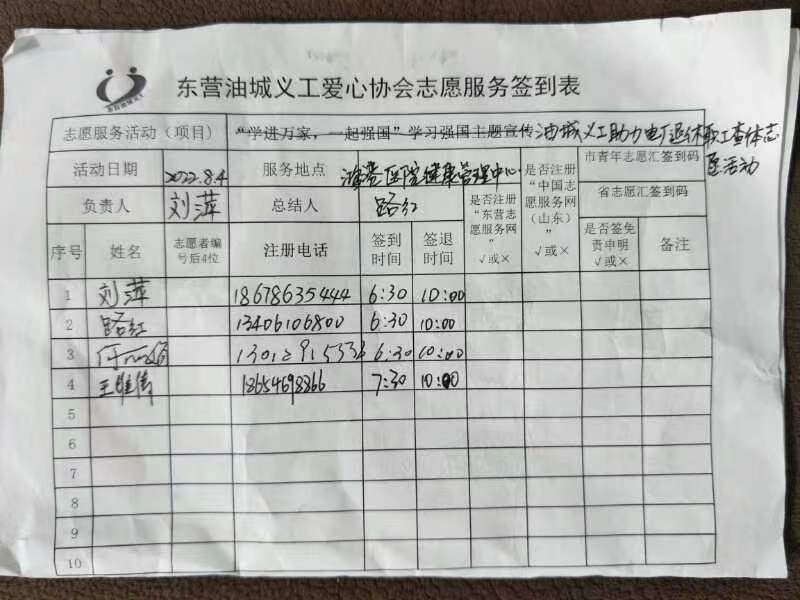 东营油城义工爱心协会志愿服务签到表
志愿服务活动(项目) “学进万家,一起强国”学习强国主题宣传 油城义工助力电厂退休职工查体志愿活动
活动日期 2022.8.4 服务地点 医院健康管理中心 是否注册“东营志愿服务网” √或× 是否注册“中国志愿服务网(山东)” √或× 市青年志愿汇签到码
负责人 刘萍 总结人 路红 省志愿汇签到码
序号 姓名 志愿者编号后4位 注册电话 签到时间 签退时间 是否签免责申明 √或× 备注
1 刘萍 18678635444 6:30 10:00
2 路红 13406106800 6:30 10:00
3 6:30 10:00
4 18654698366 7:30 10:00
5
6
7
8
9
10